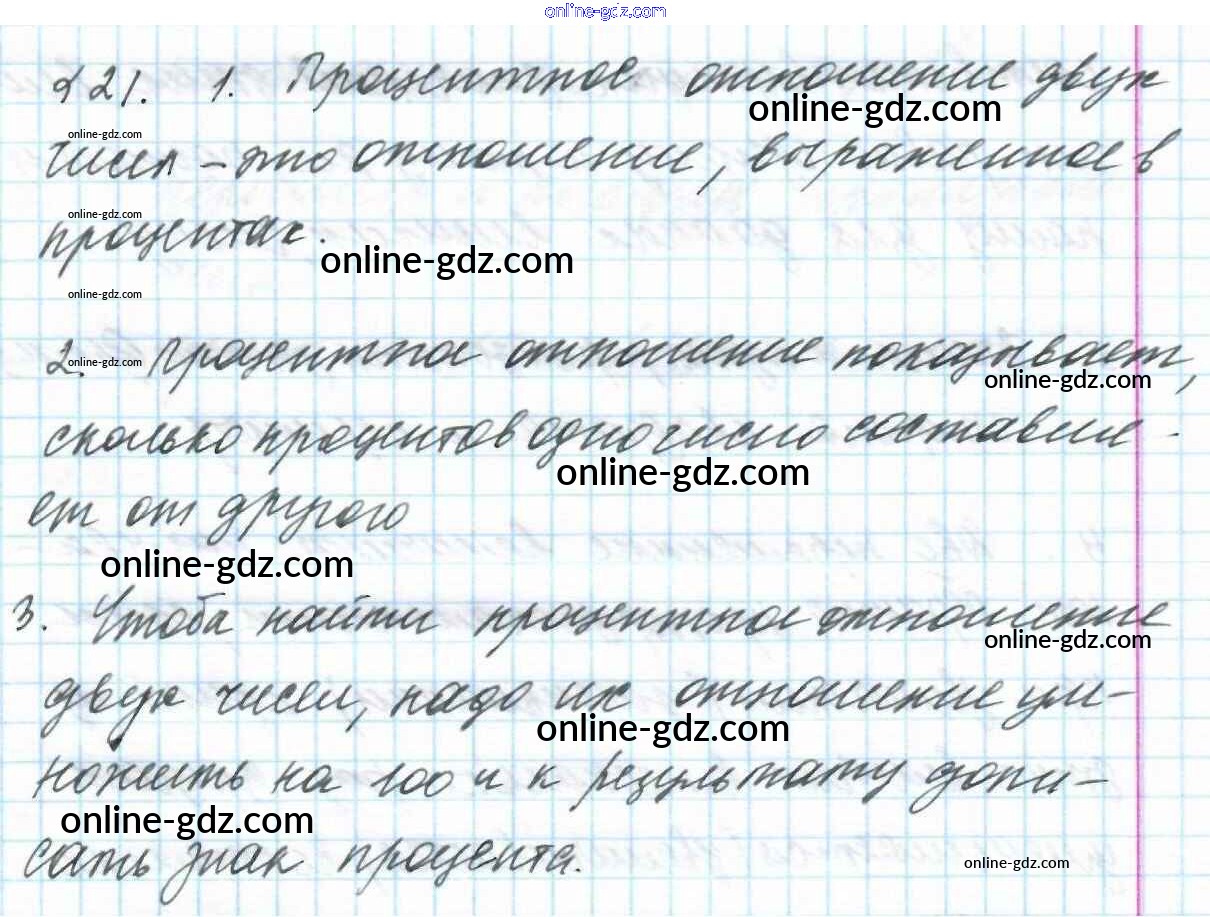 online-gdz.com
§21. 1. Процентное отношение двух
online-gdz.com
online-gdz.com
чисел – это отношение, выраженное в
online-gdz.com
процентах.
online-gdz.com
online-gdz.com
2. Процентное отношение показывает,
online-gdz.com
online-gdz.com
сколько процентов одно число составля-
online-gdz.com
ет от другого
online-gdz.com
3. Чтоба найти процентное отношение
online-gdz.com
двух чисел, надо их отношение ум-
online-gdz.com
ножить на 100 и к результату допи-
online-gdz.com
сать знак процента.
online-gdz.com